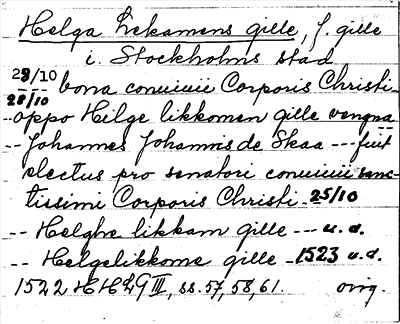 Helga Lekamens gille, f. gille
i. Stockholms stad
29/10 bona conuiuii Corporis Christi -
28/10
-- oppo Hilge likkomen gille vengna
-- Johannes Johannis de Skaa --- fuit
electus pro senatori conuiuii sanc-
tissimi Corporis Christi - 25/10
-- Helghe likkam gille --- u.d.
-- Helgelikkome gille - 1523 u.d.
1522 HHLG III, ss. 57, 58, 61. orig.